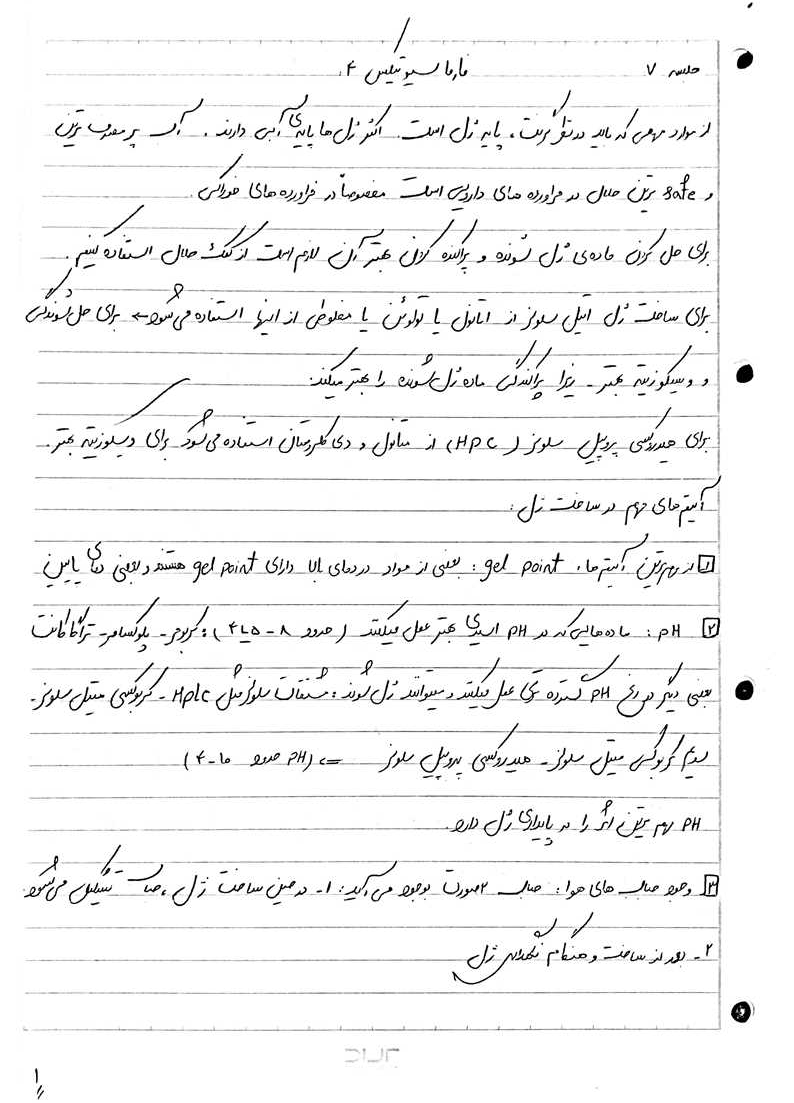 جلسه ۷
فارماسیوتیکس ۴:
از موارد مهمی که باید در نظر گرفت، پایه ژل است. اکثر ژل ها پایه‌ی آبی دارند. آب پر مصرف ترین
و safe ترین حلال در فراورده های دارویی است مخصوصاً در فراورده های خوراکی.
برای حل کردن ماده‌ی ژل شونده و پراکنده کردن بهتر آن لازم است از کمک حلال استفاده کنیم.
برای ساخت ژل اتیل سلولز از اتانول یا تولوئن یا مخلوطی از اینها استفاده می‌شود ← برای حل شوندگی
و ویسکوزیته بهتر - زیرا پراکندگی ماده ژل شونده را بهتر میکند.
برای هیدروکسی پروپیل سلولز (HPC) از متانول و دی کلرومتان استفاده می‌شود برای ویسکوزیته بهتر.
آیتم‌های مهم در ساخت ژل:
۱ از مهم‌ترین آیتم ها، gel point: بعضی از مواد در دمای بالا دارای gel point هستند و بعضی دمای پایین
۲ PH: ماده هایی که در PH اسیدی بهتر عمل میکنند (حدود ۸ - ۵ یا ۴): کربومر - پلوکسامر - تراگاکانت
بعضی دیگر در رنج PH گسترده تری عمل میکنند و میتوانند ژل شوند: مشتقات سلولز مثل HPLC - کربوکسی متیل سلولز -
سدیم کربوکسی متیل سلولز - هیدروکسی پروپیل سلولز ⇐ (PH حدود ۱۰ - ۴)
PH مهم ترین اثر را در پایداری ژل دارد.
۳ وجود حباب های هوا: حباب ۲ صورت بوجود می آید: ۱- در حین ساخت ژل، حباب تشکیل می‌شود
۲- بعد از ساخت و هنگام نگهداری ژل
۱